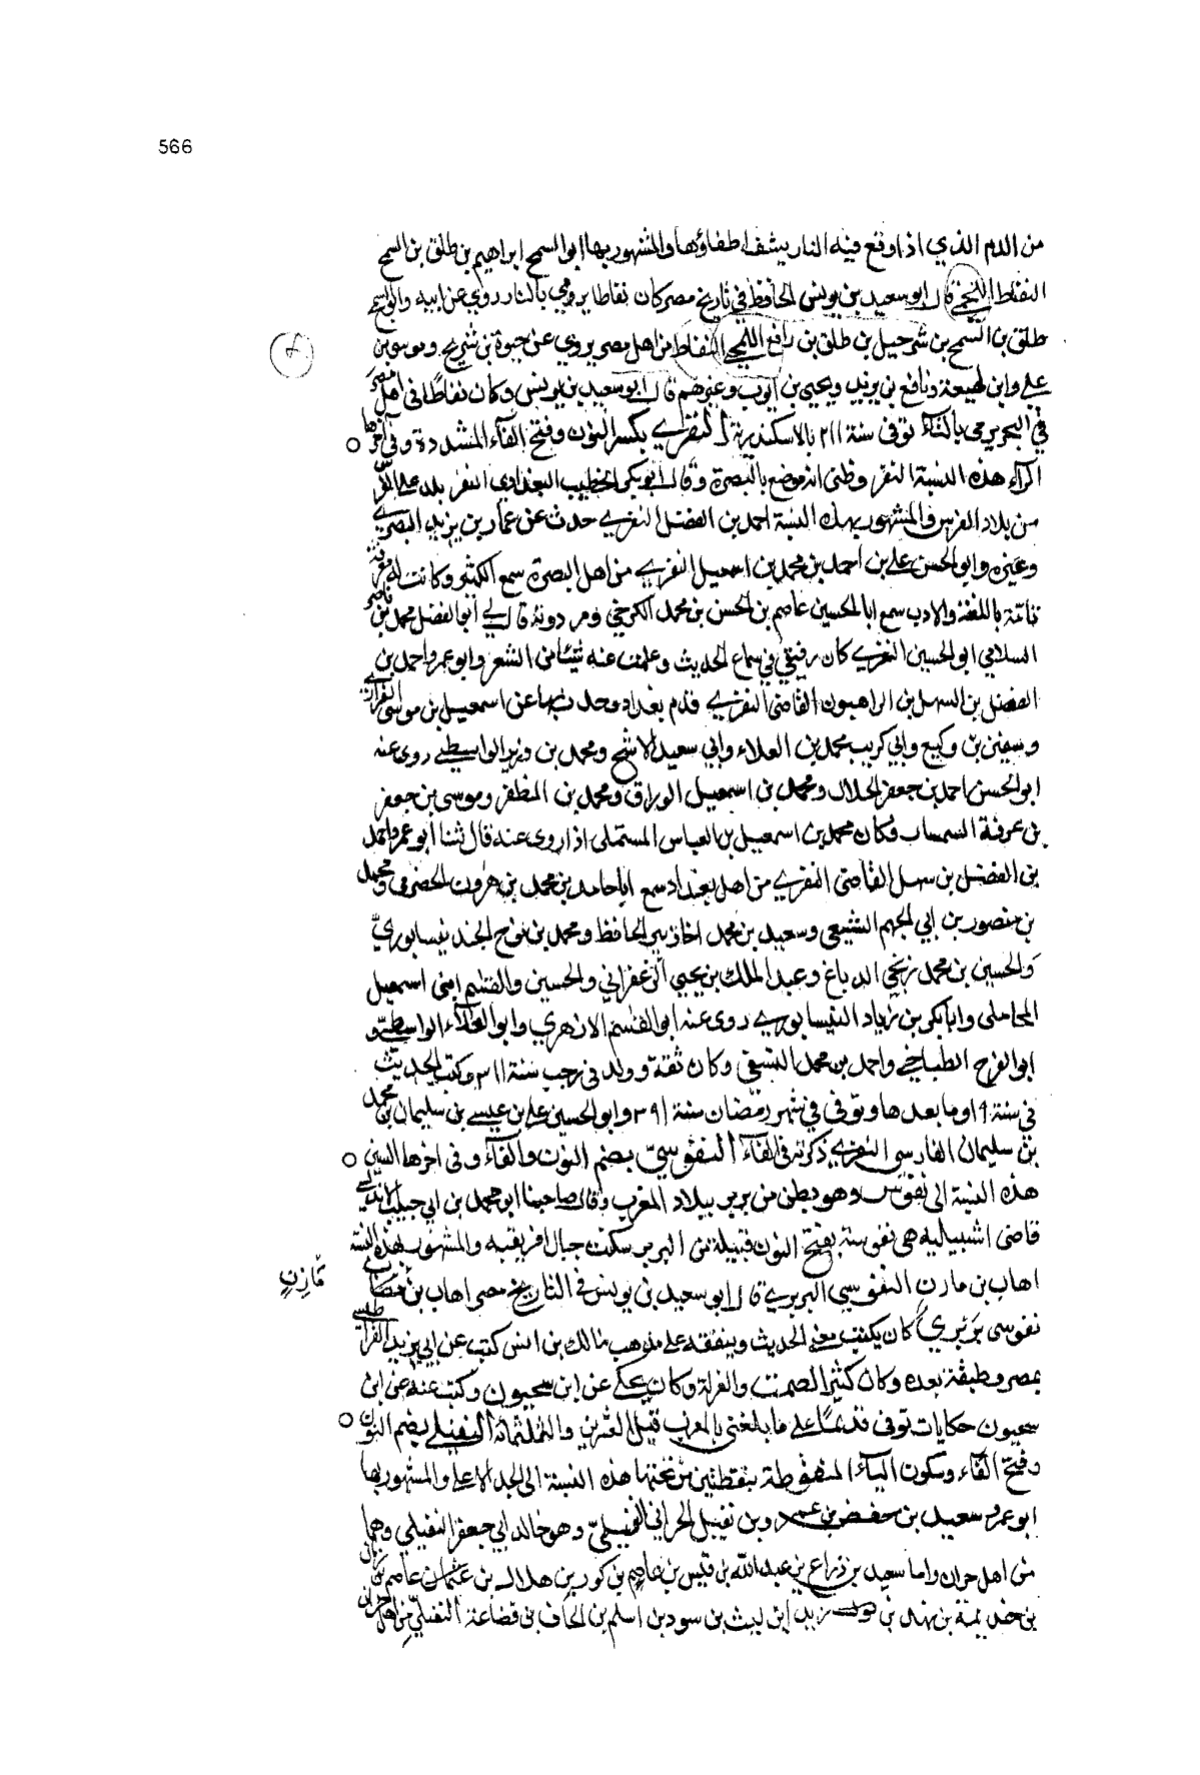 566
من الدم الذي اذا وقع فيه النار يشف اطفاؤها والمشهور بها ابو السمح ابراهيم بن طلق بن السمح
النفاط اللخمي قال ابو سعيد بن يونس الحافظ في تاريخ مصر كان نفاطا يرمي بالنار روى عن ابيه
طلق بن السمح بن شرحبيل بن طلق بن رافع اللخمي النفاط من اهل مصر يروي عن حيوة بن شريح وموسى بن
علي وابن لهيعة ونافع بن يزيد ويحيى بن ايوب وغيرهم قال ابو سعيد بن يونس وكان نفاطا في اهل مصر
في البحر يرمي بالنار توفي سنة ٢١١ بالاسكندرية النفري بكسر النون وفتح الفاء المشددة وفي آخرها
الراء هذه النسبة الى النفر وظني انه موضع بالبصرة وقال ابو بكر الخطيب البغدادي النفر بلد على
من بلاد الفرس والمشهور بهذه النسبة احمد بن الفضل النفري حدث عن عمار بن يزيد البصري
وغيره وابو الحسن علي بن احمد بن محمد بن اسمعيل النفري من اهل البصرة سمع الكثير وكانت له معرفة
تامة باللغة والادب سمع ابا الحسين عاصم بن الحسن بن محمد الكرخي ومن دونه قال لي ابو الفضل محمد بن ناصر
السلامي ابو الحسين النفري كان رفيقي في سماع الحديث وعلمت عنه شيئا من الشعر وابو عمرو احمد بن
الفضل بن السهل بن الراهبون القاضي النفري قدم بغداد وحدث بها عن اسمعيل بن موسى الفزاري
وسفين بن وكيع وابي كريب محمد بن العلاء وابي سعيد الاشج ومحمد بن وزير الواسطي روى عنه
ابو الحسن احمد بن جعفر الخلال ومحمد بن اسمعيل الوراق ومحمد بن المظفر وموسى بن جعفر
بن عرفة السمسار وكان محمد بن اسمعيل بن العباس المستملي اذا روى عنه قال ثنا ابو عمرو احمد
بن الفضل بن سهل القاضي النفري من اهل بغداد سمع ابا حامد بن محمد بن هرون الحضرمي ومحمد
بن منصور بن ابي الجهم الشيعي وسعيد بن محمد اخا زبير الحافظ ومحمد بن نوح الجنديسابوري
والحسين بن محمد الدباغ وعبد الملك بن يحيى الزعفراني والحسين والقسم ابني اسمعيل
المحاملي وابا بكر بن زياد النيسابوري روى عنه ابو القسم الازهري وابو العلاء الواسطي و
ابو الفرج الطناجيري واحمد بن محمد العتيقي وكان ثقة وولد في رجب سنة ٣١١ وكتب الحديث
في سنة ١٩ وما بعدها وتوفي في شهر رمضان سنة ٣٩١ وابو الحسين علي بن عيسى بن سليمان بن محمد
بن سليمان الفارسي النفري ذكرته في الفاء النفوسي بضم النون والفاء وفي اخرها السين
هذه النسبة الى نفوس وهو بطن من بربر ببلاد المغرب وقال صاحبنا ابو محمد بن ابي حبيب الاندلسي
قاضي اشبيليه هي نفوسة بفتح النون قبيلة من البربر سكنت جبال افريقيه والمشهور بهذه النسبة
مازن
اهاب بن مازن النفوسي البربري قال ابو سعيد بن يونس في التاريخ مصر اهاب بن
نفوسي بربري كان يكتب معي الحديث ويتفقه على مذهب مالك بن انس كتب عن ابي يزيد القراطيسي
بمصر وطبقة بعده وكان كثير الصمت والعزلة وكان يحكي عن ابن سحنون وكتب عنه عن ابن
سحنون حكايات توفي قديما على ما بلغني بالمغرب قبل العشرين والثلثمائة النفيلي بضم النون
وفتح الفاء وسكون الياء المنقوطة بنقطتين من تحتها هذه النسبة الى الجد الاعلى والمشهور بها
ابو عمرو سعيد بن حفص بن عمرو بن نفيل الحراني النفيلي وهو خال ابي جعفر النفيلي وهما
من اهل حران واما سعيد بن زراع بن عبد الله بن قيس بن عاصم بن كوز بن هلال بن
بن خزيمة بن نهد بن زيد ابن ليث بن سود بن اسلم بن الحاف بن قضاعة النفيلي من اهل حران